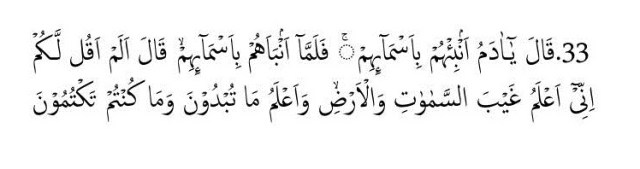 33.قَالَ يٰٓاٰدَمُ اَنْۢبِئْهُمْ بِاَسْمَاۤىِٕهِمْ ۚ فَلَمَّآ اَنْۢبَاَهُمْ بِاَسْمَاۤىِٕهِمْۙ قَالَ اَلَمْ اَقُل لَّكُمْ
اِنِّيْٓ اَعْلَمُ غَيْبَ السَّمٰوٰتِ وَالْاَرْضِۙ وَاَعْلَمُ مَا تُبْدُوْنَ وَمَا كُنْتُمْ تَكْتُمُوْنَ